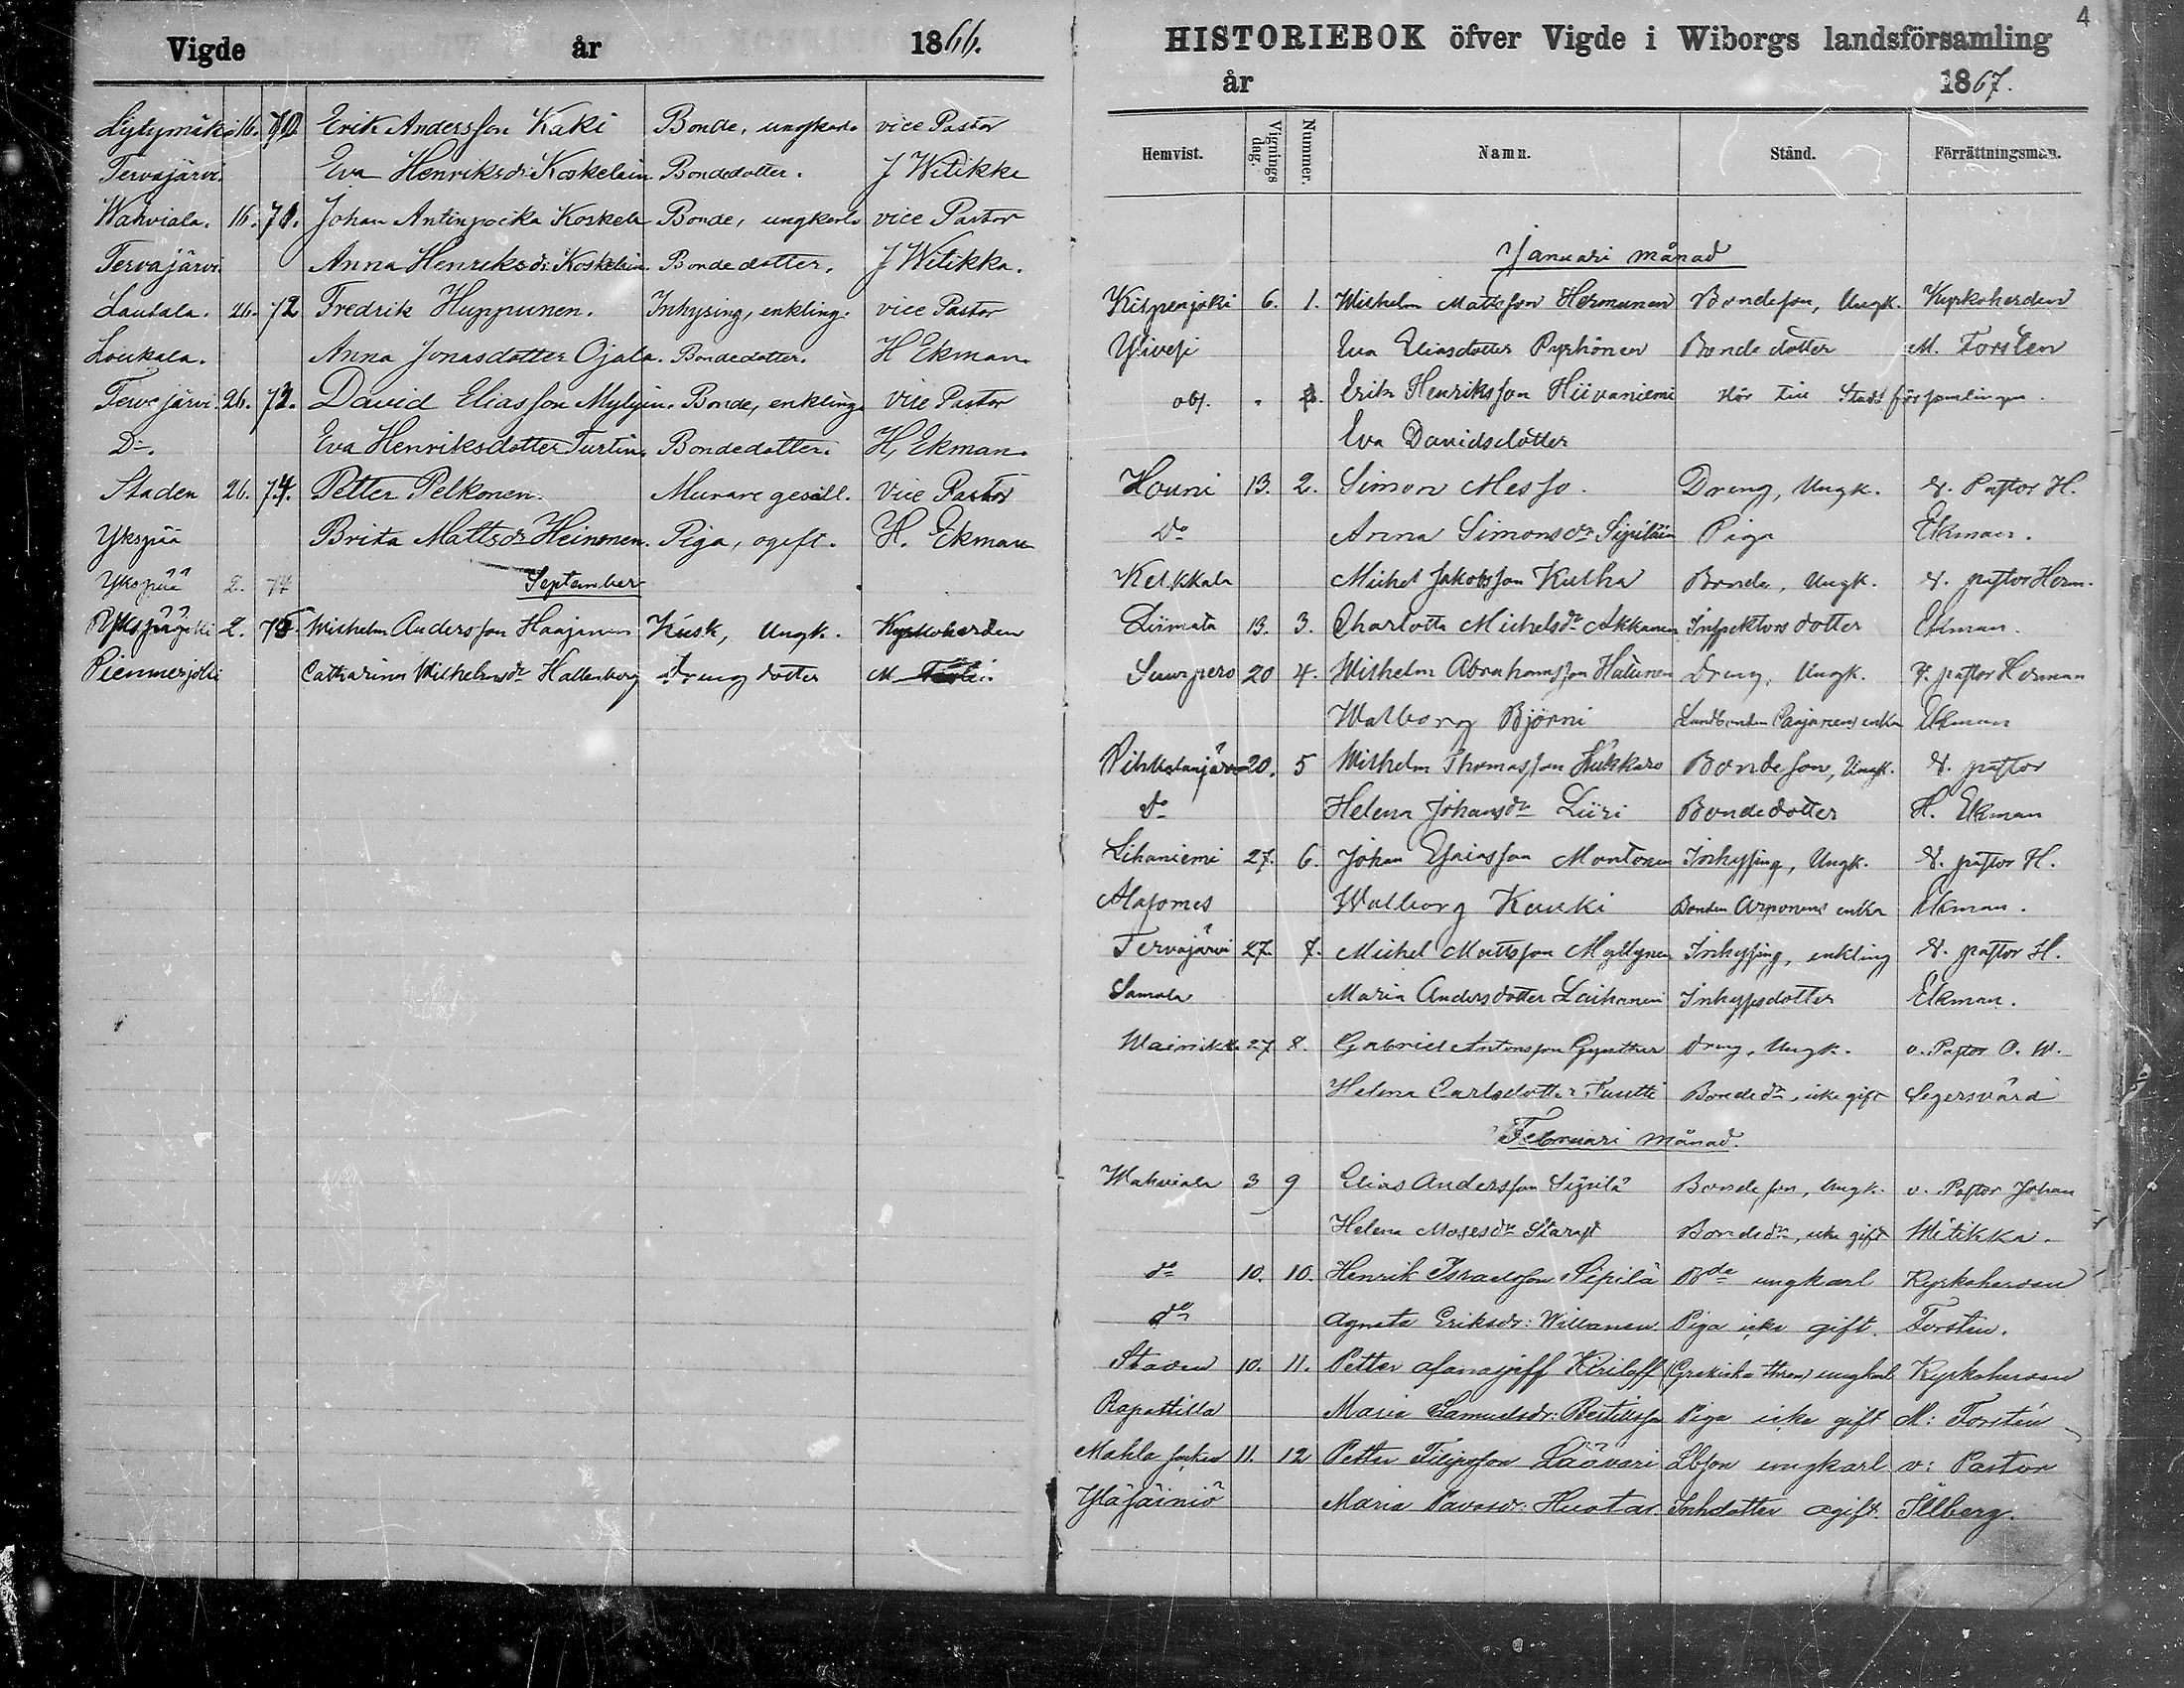 Vigde år 1866.
Lyytymäki 16. 70. Erik Andersson Kaki Bonde, ungkarl vice Pastor
Tervajärvi. Eva Henriksdr Koskelain Bondedotter. J Witikka
Wahviala. 16. 71. Johan Antinpoika Koskela Bonde, ungkarl vice Pastor
Tervajärvi Anna Henriksdr Koskelain. Bondedotter. J Witikka.
Lautala. 26. 72 Fredrik Huppunen. Inhysing, enkling. vice Pastor
Loukala. Anna Jonasdotter Ojala. Bondedotter. H Ekman.
Tervajärvi. 26. 73. David Eliasson Bonde, enkling vice Pastor
Do. Eva Henriksdotter Turtin. Bondedotter. H, Ekman.
Staden 26. 74. Petter Pelkonen. Murare gesäll. Vice Pastor
Ykspää Brita Mattsdr Heinonen. Piga, ogift. H. Ekman
Ykspää 2. 74 September
2. 75. Wilhelm Andersson Haajanen Kusk, Ungk. Kyrkoherden
Catharina Wilhelmsdr Hallenberg Drengdotter M.
4
HISTORIEBOK öfver Vigde i Wiborgs landsförsamling
år 1867.
Hemvist. Vignings dag. Nummer. Namn. Stånd. Förrättningsman.
Januari månad
Kilpenjoki 6. 1. Wilhelm Mattsson Hermunen Bondeson, Ungk. Kyrkoherden
Ylivesi Eva Eliasdotter Pyrhönen Bonde dotter M. Forstén
obs. Erik Henriksson Hiivaniemi Hör till Stadsförsamlingen.
Eva Davidsdotter
Houni 13. 2. Simon Messo. Dreng, Ungk. V. Pastor H.
Do Anna Simonsdr Sipiläin Piga Ekman.
Kelkkala Michel Jakobsson Kulha Bonde, Ungk. V. pastor Herm.
Liimata 13. 3. Charlotta Michelsdr Akkanen Inspektors dotter Ekman.
Suurpero 20 4. Wilhelm Abrahamsson Hatunen Dreng, Ungk. V. pastor Herman
Walborg Björni Landbonden Paajanens enka Ekman
20. 5 Wilhelm Thomasson Kukkaro Bondeson, Ungk. V. pastor
do Helena Johansdr Liiri Bondedotter H. Ekman
Lihaniemi 27. 6. Johan Montonen Inhysing, Ungk. V. pastor H.
Alasomes Walborg Kauki Bonden Arponens enka Ekman.
Tervajärvi 27. 7. Michel Mattsson Myllynen Inhysing, enkling V. pastor H.
Samola Maria Andersdotter Laihanen Inhysdotter Ekman.
Wainikka 27 8. Gabriel Antonsson Gynther Dreng, Ungk. v. Pastor O. W.
Helena Carlsdotter Tuutti Bondedr, icke gift Segersvärd
Februari månad.
Wahviala 3 9 Elias Andersson Sipilä Bondeson, Ungk. v. Pastor Johan
Helena Mosesdr Starast Bondedr, icke gift Witikka.
do 10. 10. Henrik Israelsson Sipilä Bde ungkarl Kyrkoherden
do Agneta Eriksdr: Willanen Piga icke gift. Forstén.
Staden 10. 11. Petter Afanasjeff Kiriloff (Grekiska thron) ungkarl Kyrkoherden
Rapattila Maria Samuelsdr: Piga icke gift M: Forstén
11. 12 Petter Filipsson Läävari Lbson ungkarl v: Pastor
Yläsäiniö Maria Pavosdr: Huotar. Inhdotter ogift. Illberg.